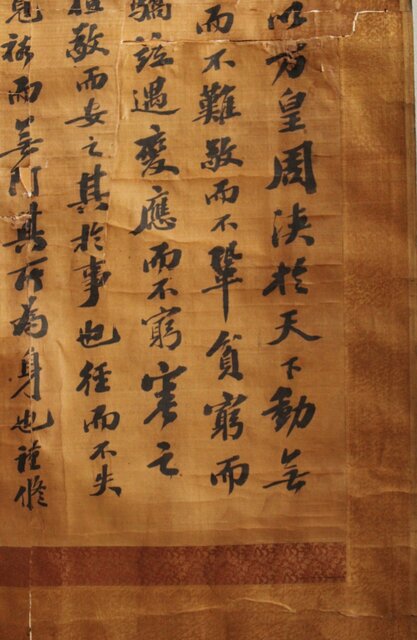 以方皇周浹於天下動無
而不難敬而不鞏貧窮而
驕竝遇變應而不窮審之
禮敬而安之其於事也徑而不失
寬裕而無阿其所為身也謹修